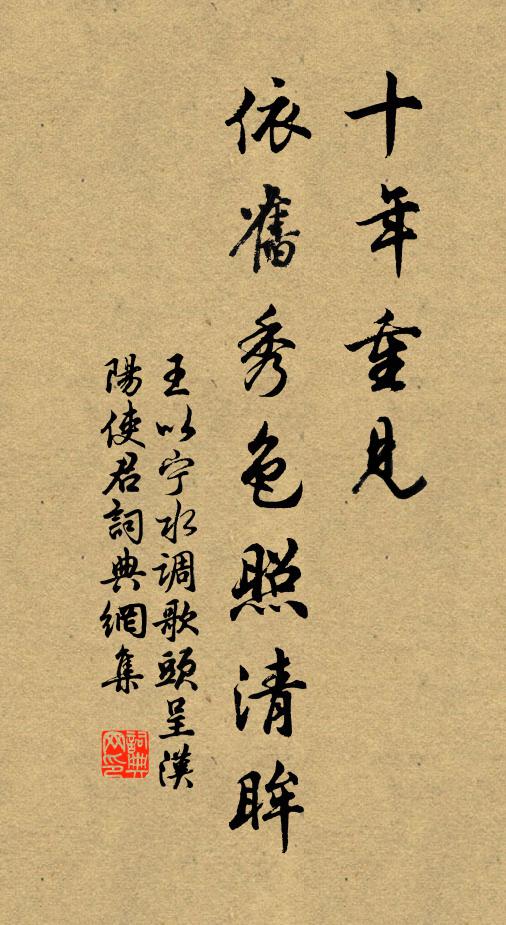 十年重見
依舊秀色照清眸
王以宁水调歌頭呈漢
陽使君詞典網集
詞典
网印